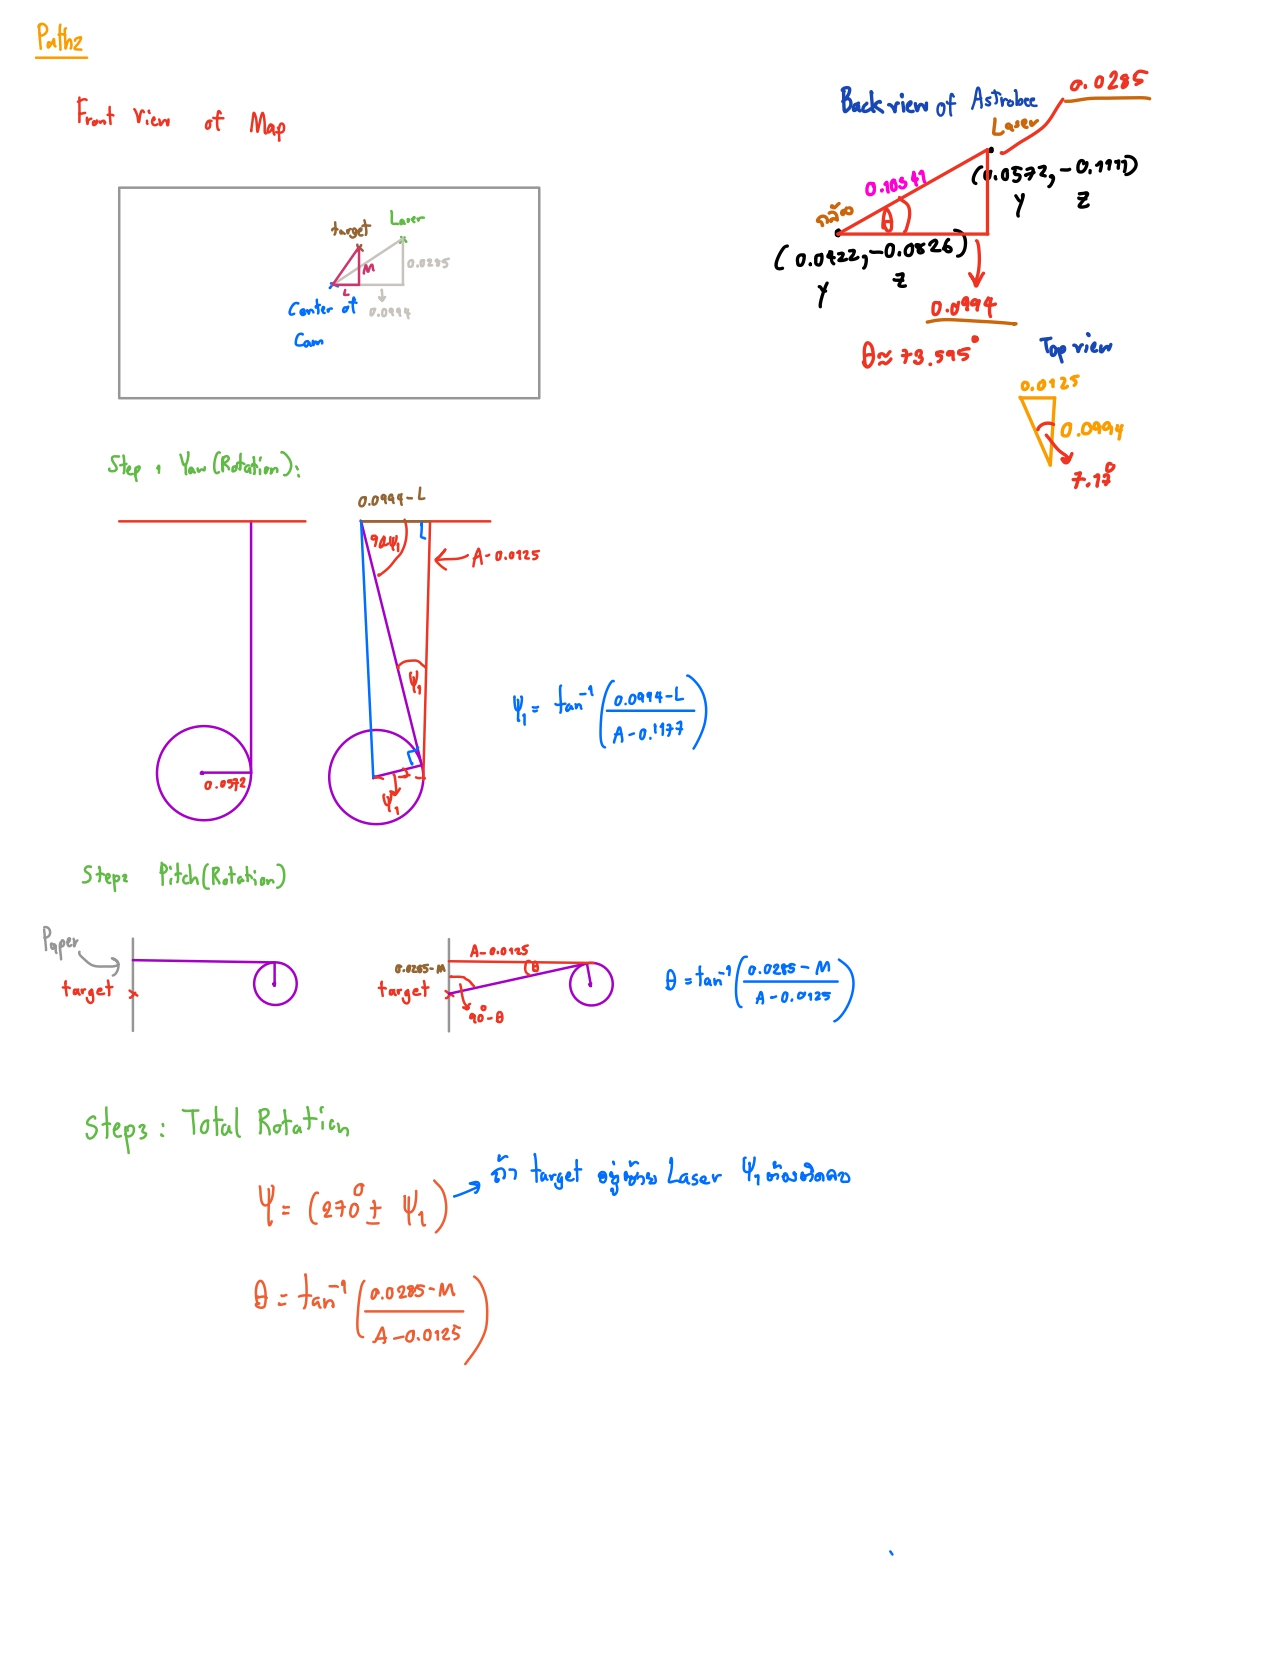 Path2
Front View of Map
target
Laser
M
0.0285
L
0.0994
Center of
Cam
Back view of Astrobee
0.0285
Laser
0.10341
(0.0572, -0.1111)
y z
กล้อง
θ
(0.0422, -0.0826)
y z
0.0994
θ ≈ 73.595°
Top view
0.0125
0.0994
7.17°
Step 1 Yaw (Rotation):
0.0994-L
A-0.0125
ψ1
0.0572
ψ1
ψ1 = tan⁻¹(0.0994-L / A-0.1177)
Step2 Pitch (Rotation)
Paper
target
A-0.0125
0.0285-M
θ
target
90°-θ
θ = tan⁻¹(0.0285-M / A-0.0125)
Step3: Total Rotation
ψ = (270° ± ψ1)
ถ้า target อยู่ซ้าย Laser ψ1 ต้องติดลบ
θ = tan⁻¹(0.0285-M / A-0.0125)